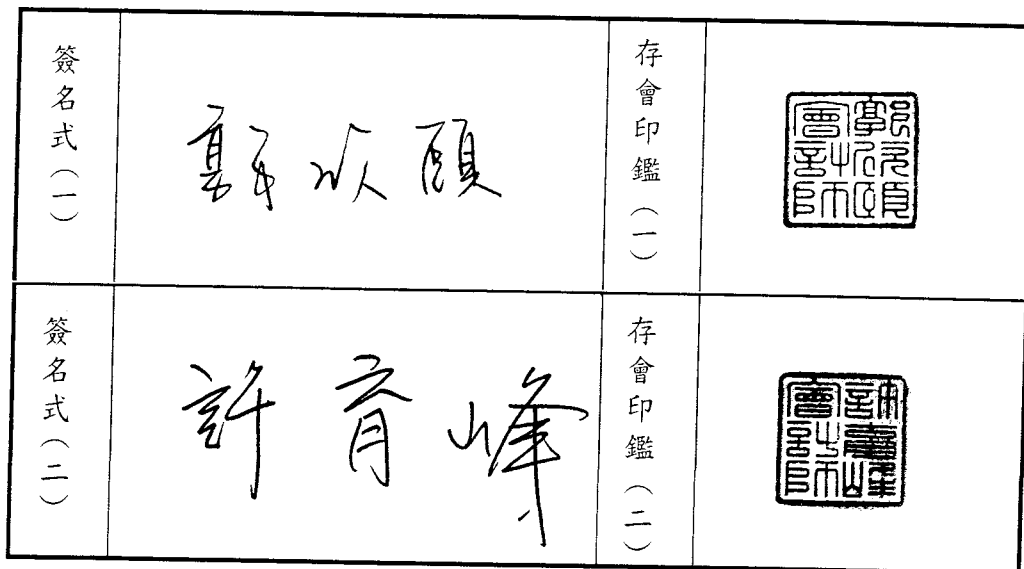 簽名式(一)
郭欣頤
存會印鑑(一)
郭欣頤會計師
簽名式(二)
許育峰
存會印鑑(二)
許育峰會計師